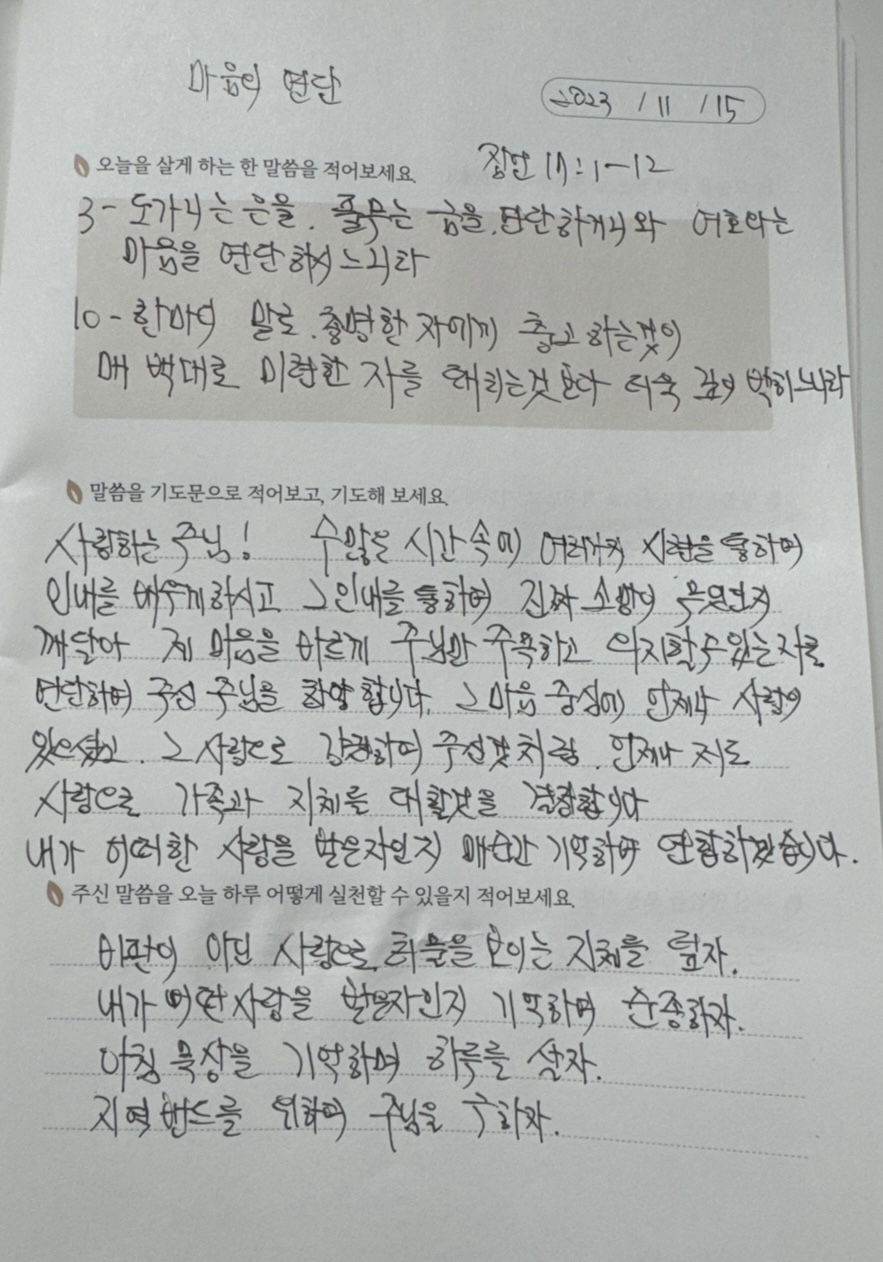 마음의 연단
2023 / 11 / 15
오늘을 살게 하는 한 말씀을 적어보세요.
잠언 17:1-12
3- 도가니는 은을. 풀무는 금을. 연단하거니와 여호와는
마음을 연단하시느니라
10- 한마디 말로. 총명한 자에게 충고 하는것이
매 백대로 미련한 자를 때리는것 보다 더욱 깊이 박히느니라
말씀을 기도문으로 적어보고, 기도해 보세요.
사랑하는 주님! 수많은 시간 속에 여러가지 시련을 통하여
인내를 배우게하시고 그 인내를 통하여 진짜 소망이 무엇인지
깨달아 제 마음을 바르게 주님만 주목하고 의지할수있는자로
연단하여 주신 주님을 찬양 합니다. 그 마음 중심에 언제나 사랑이
있으셨고. 그 사랑으로 감당하여 주신것 처럼. 언제나 저도
사랑으로 가족과 지체를 대할것을 결정합니다
내가 어떠한 사랑을 받은자인지 매순간 기억하며 연합하겠습니다.
주신 말씀을 오늘 하루 어떻게 실천할 수 있을지 적어보세요.
비판이 아닌 사랑으로 허물을 보이는 지체를 덮자.
내가 어떤사랑을 받은자인지 기억하며 순종하자.
아침 묵상을 기억하며 하루를 살자.
지역 밴드를 위하여 주님을 구하자.